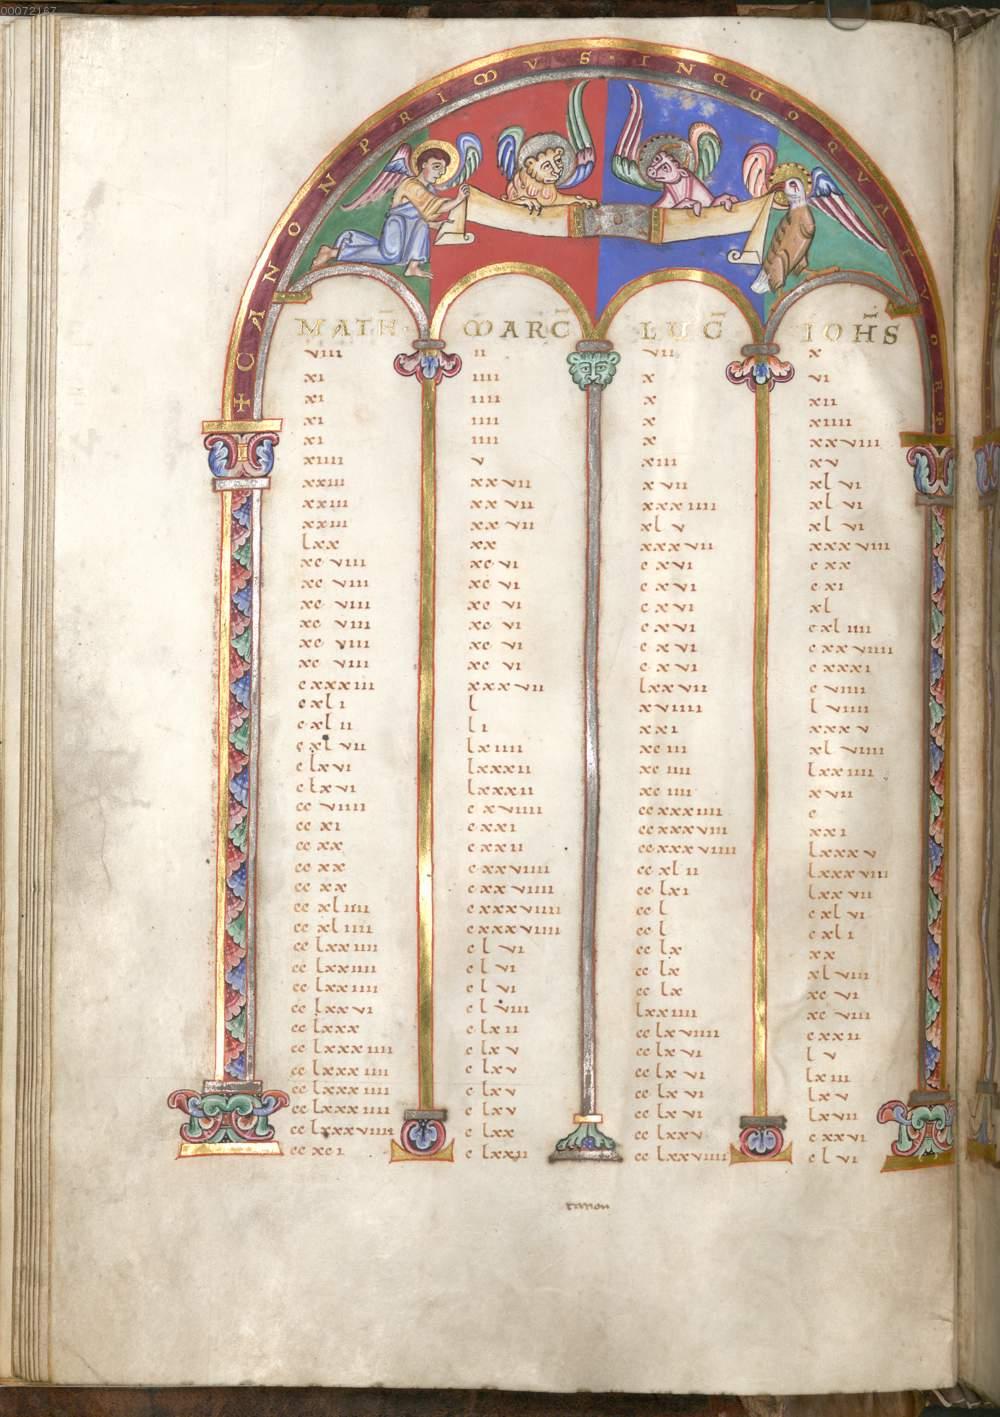 ✝ CANON PRIMVS · IN QUO QVATTVOR ·
MATH̄ · MARC̄ LUC̄ IOH̄S
viii ii vii x
xi iiii x vi
xi iiii x xii
xi iiii x xiiii
xi iiii x xxviii
xiiii v xiii xv
xxiii xxvii xvii xlvi
xxiii xxvii xxxiiii xlvi
xxiii xxvii xlv xlvi
lxx xx xxxvii xxxviiii
xcviii xcvi cxvi cxx
xcviii xcvi cxvi cxi
xcviii xcvi cxvi xl
xcviii xcvi cxvi cxliiii
xcviii xcvi cxvi cxxviiii
xcviii xcvi cxvi cxxxi
cxxxiii xxxvii lxxvii cviiii
cxli l xviiii lviiii
cxlii li xxi xxxv
cxlvii lxiiii xciii xlviiii
clxvi lxxxii xciiii lxxiiii
clxvi lxxxii xciiii xvii
ccviiii cxviiii ccxxxiiii c
ccxi cxxi ccxxxviii xxi
ccxx cxxii ccxxxviiii lxxxv
ccxx cxxviiii ccxlii lxxxviii
ccxx cxxviiii cclxi lxxvii
ccxliiii cxxxviiii ccl cxlvi
ccxliiii cxxxviiii ccl cxli
cclxxiiii clvi cclx xx
cclxxiiii clvi cclx xlviii
cclxxiiii clvi cclx xcvi
cclxxvi clviii lxxiiii xcviii
cclxxx clxii cclxviiii cxxii
cclxxxiiii clxv cclxvi lv
cclxxxiiii clxv cclxvi lxiii
cclxxxiiii clxv cclxvi lxv
cclxxxiiii clxv cclxvi lxvii
cclxxxviiii clxx cclxxv cxxvi
ccxci clxxii cclxxviiii clvi
canon
00072167